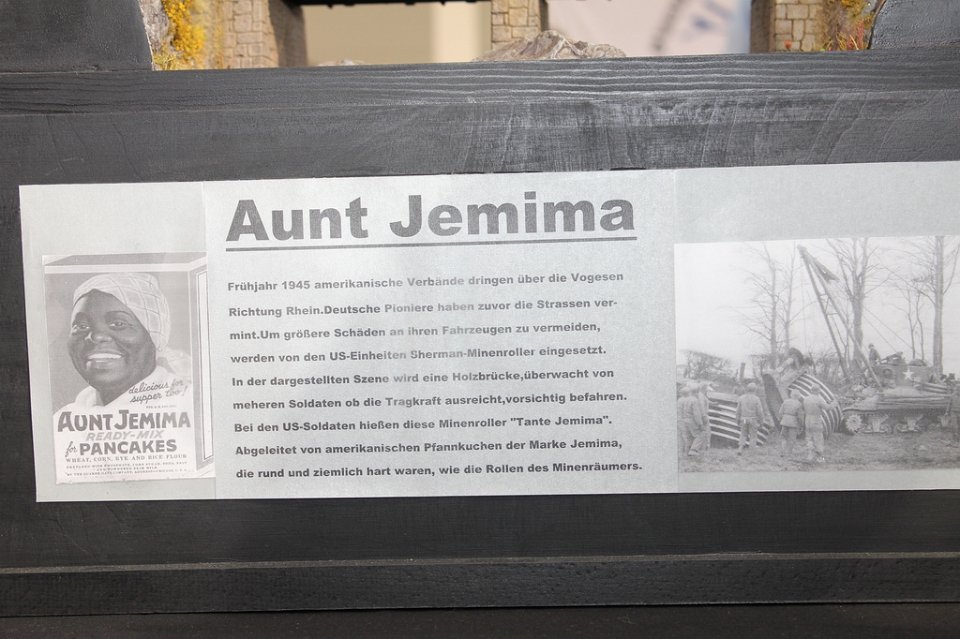 Aunt Jemima
Frühjahr 1945 amerikanische Verbände dringen über die Vogesen
Richtung Rhein.Deutsche Pioniere haben zuvor die Strassen ver-
mint.Um größere Schäden an ihren Fahrzeugen zu vermeiden,
werden von den US-Einheiten Sherman-Minenroller eingesetzt.
In der dargestellten Szene wird eine Holzbrücke,überwacht von
meheren Soldaten ob die Tragkraft ausreicht,vorsichtig befahren.
Bei den US-Soldaten hießen diese Minenroller "Tante Jemima".
Abgeleitet von amerikanischen Pfannkuchen der Marke Jemima,
die rund und ziemlich hart waren, wie die Rollen des Minenräumers.
delicious for
supper too!
AUNT JEMIMA
READY-MIX
for PANCAKES
WHEAT, CORN, RYE AND RICE FLOUR